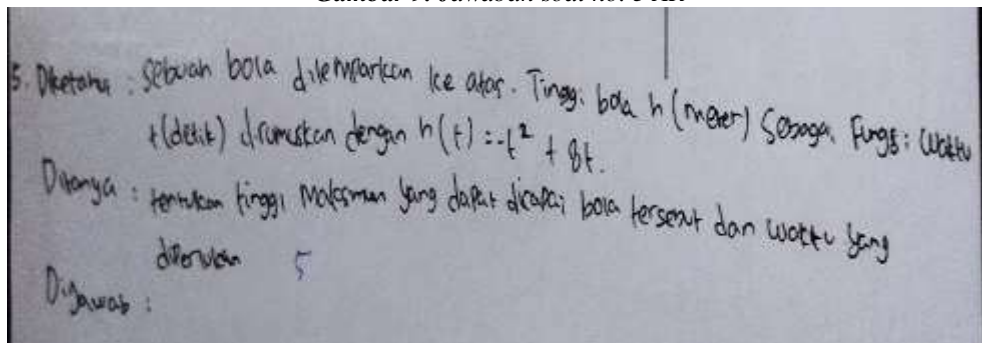 5. Diketahui : Sebuah bola dilemparkan ke atas. Tinggi bola h (meter) Sebagai fungsi waktu
t (detik) dirumuskan dengan h(t) = -t² + 8t.
Ditanya : tentukan tinggi maksimum yang dapat dicapai bola tersebut dan waktu yang
diperlukan 5
Dijawab :